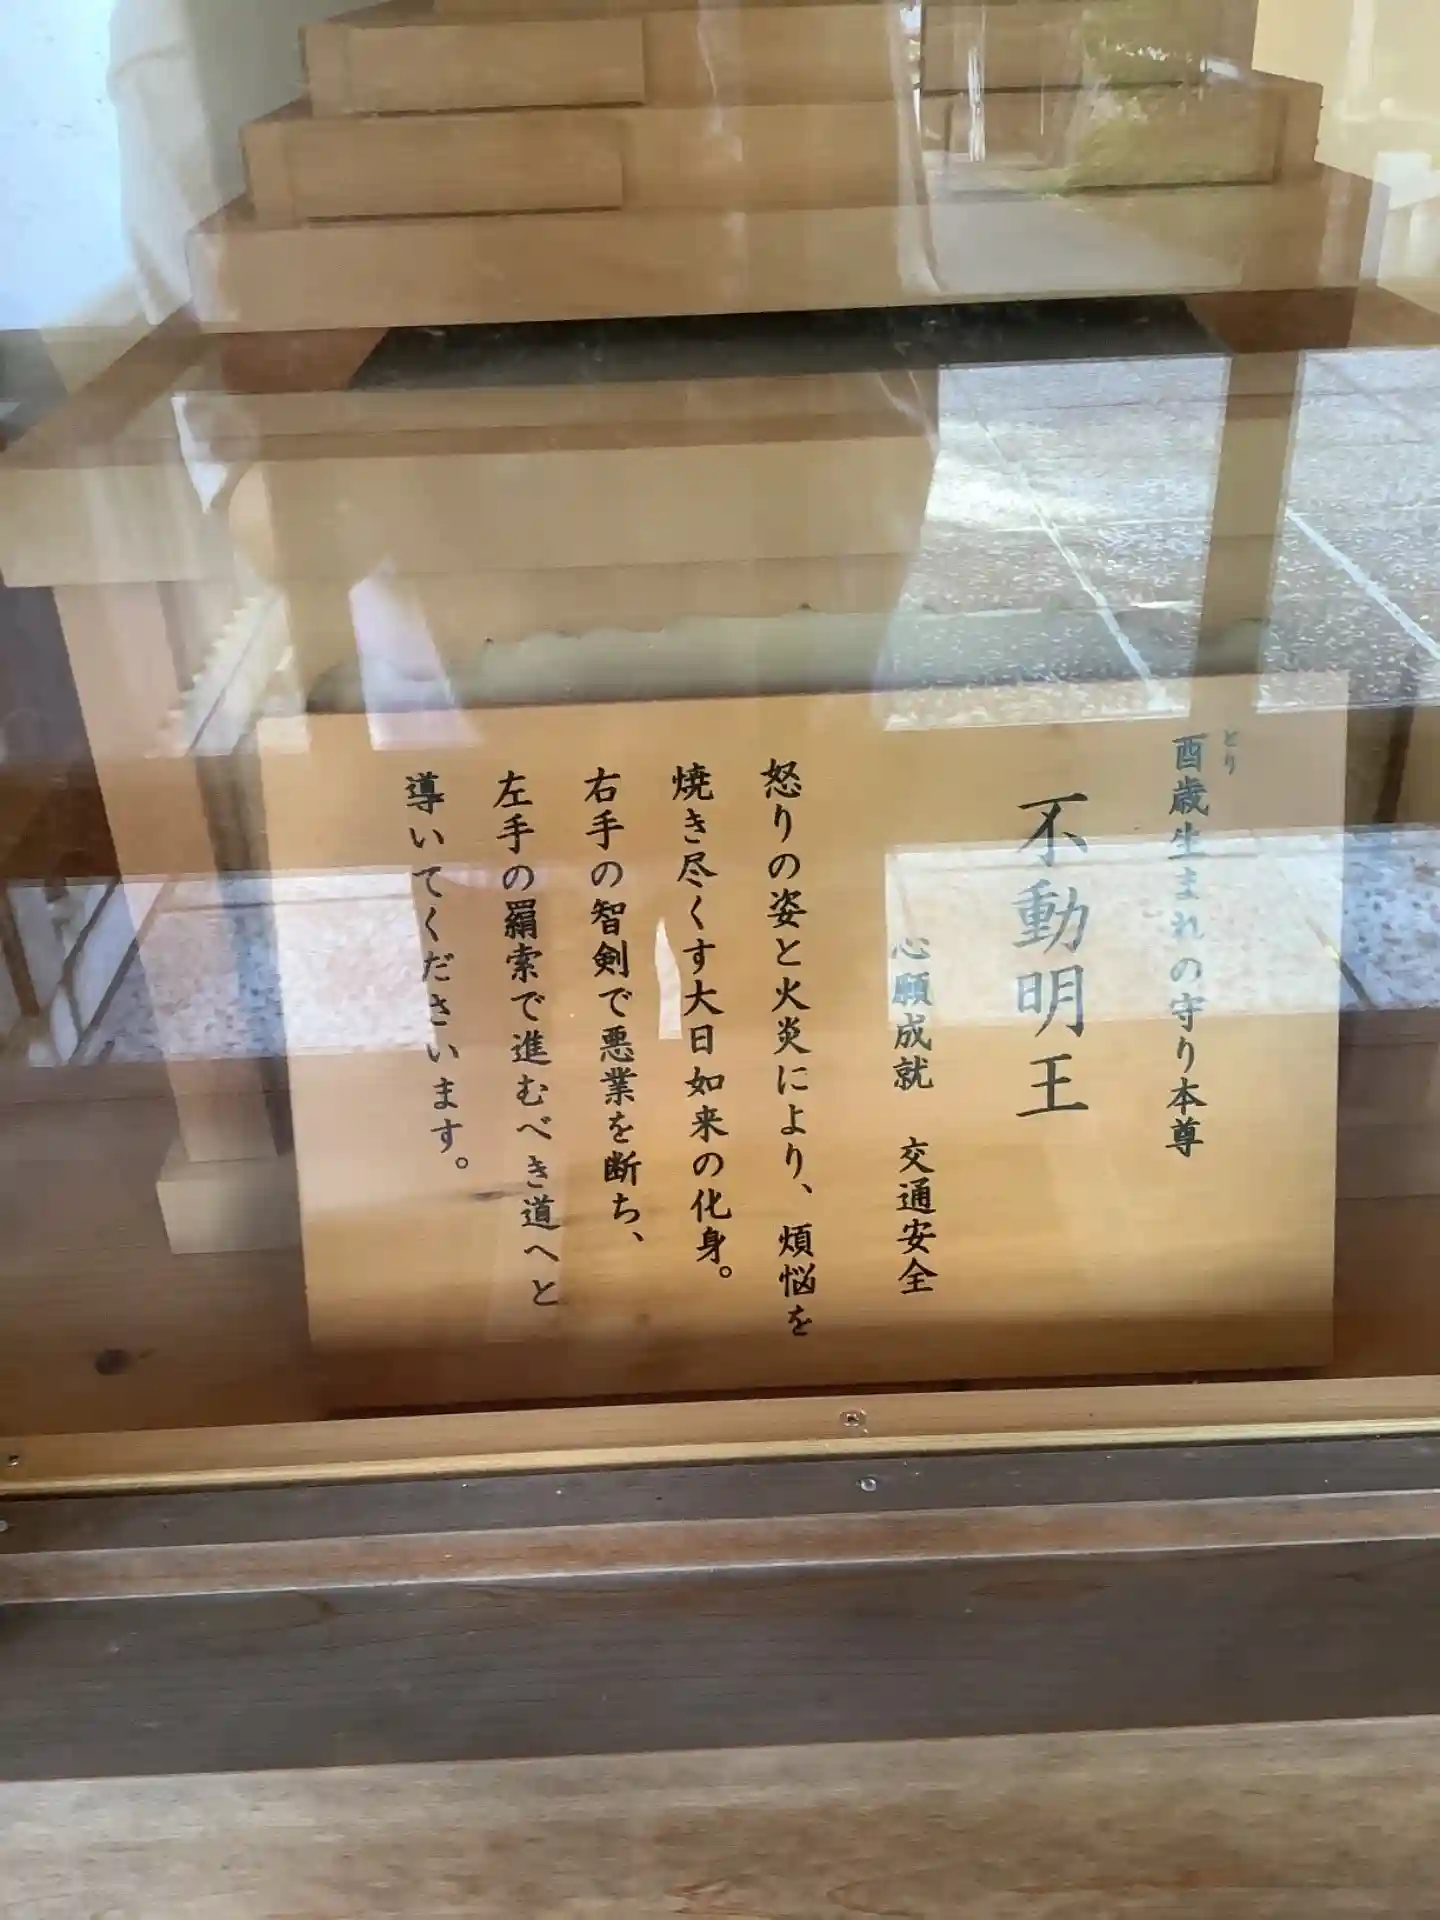 酉歳生まれの守り本尊
とり
不動明王
心願成就 交通安全
怒りの姿と火炎により、煩悩を
焼き尽くす大日如来の化身。
右手の智剣で悪業を断ち、
左手の羂索で進むべき道へと
導いてくださいます。